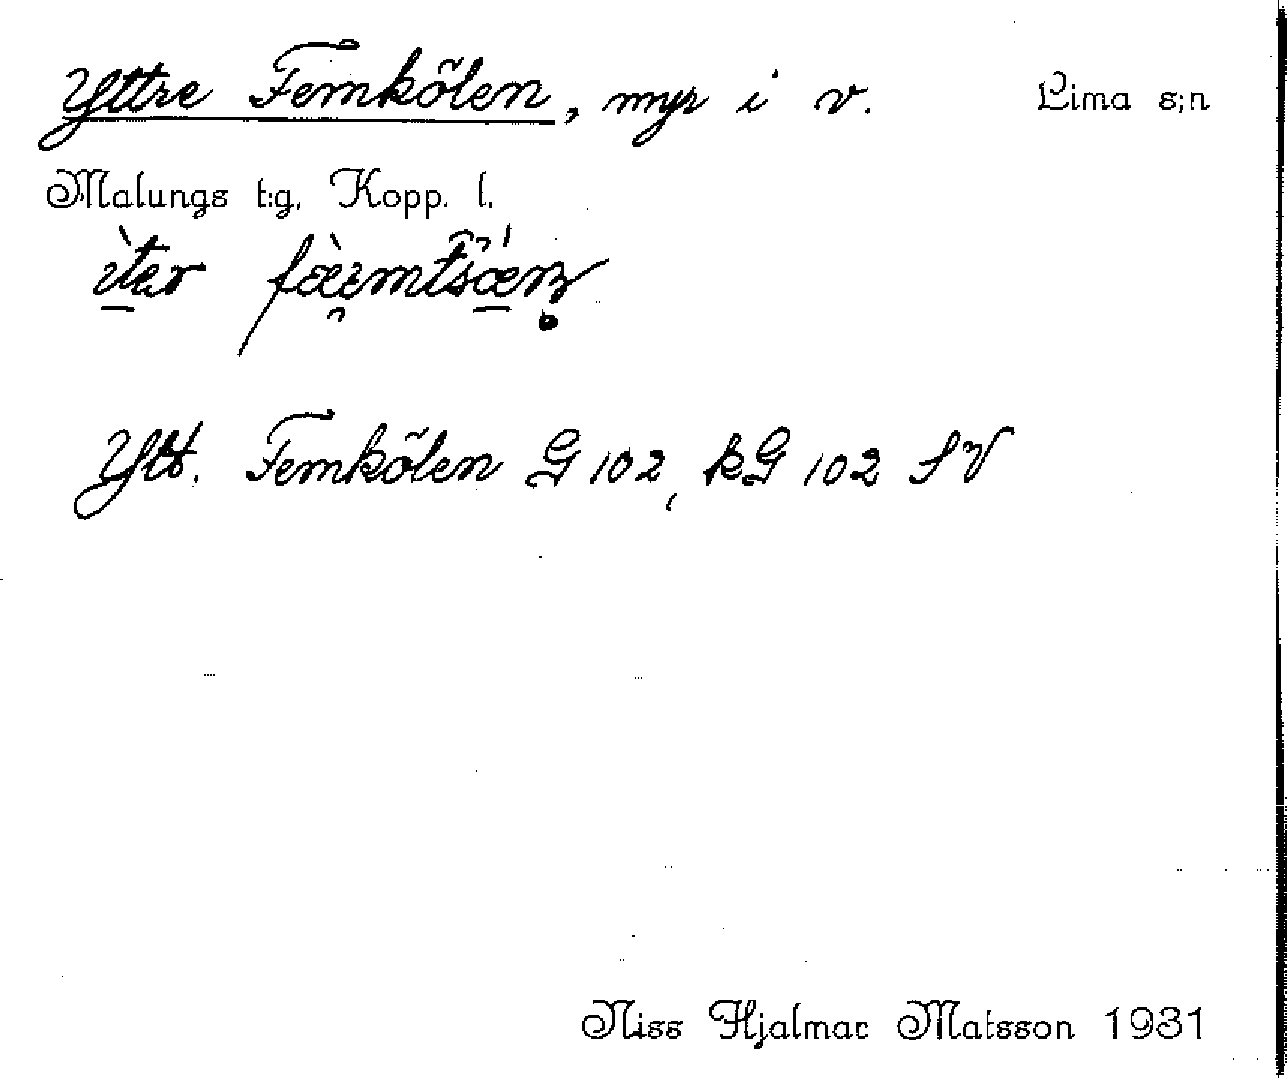 Yttre Femkölen, myr i v. Lima s:n
Malungs t:g, Kopp. l.
Ytt. Femkölen G 102, kG 102 SV
Niss Hjalmar Matsson 1931